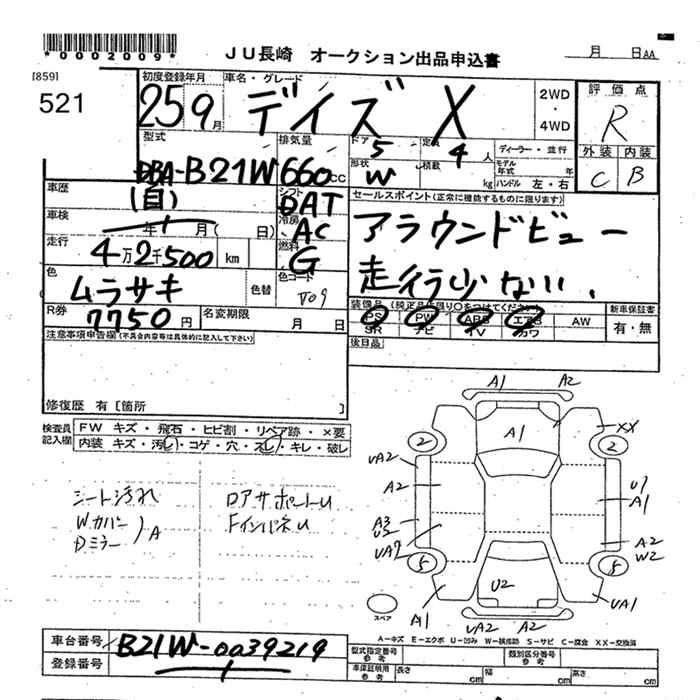 *0002009*
JU長崎 オークション出品申込書
月 日AA
[859]
521
初度登録年月 車名・グレード
25 9月 デイズ X
2WD
・
4WD
評価点
R
外装 内装
C B
型式 排気量 ドア 定員
DBA-B21W 660cc 5 4人
ディーラー・並行
形状 積載 モデル年式 年
W kg ハンドル 左・右
車歴 シフト
(自) DAT
セールスポイント(正常に機能するものに限ります)
アラウンドビュー
走行少ない、
車検 冷房
年 月( 日) AC
走行 燃料
4万2千500 km G
色 色替 色コード
ムラサキ
装備品(純正品に限り○をつけてください) 新車保証書
PS PW ABS エアB AW
SR ナビ TV カワ
有・無
R券 名変期限
7750円 月 日
後日品
注意事項申告欄(不具合内容等は具体的に記入して下さい)
修復歴 有[箇所 ]
検査員記入欄
FW キズ・飛石・ヒビ割・リペア跡・×要
内装 キズ・汚レ・コゲ・穴・スレ・キレ・破レ
シート汚れ
Wカバー
Dミラー
A
ロアサポートU
FインパネU
A1 A2
A1
XX
2 2
UA2
A2
A1
A3
A2
W2
5 5
U2
A1 UA1
UA2 A2
スペア
A-キズ E-エクボ U-凹み W-補修跡 S-サビ C-腐食 XX-交換済
車台番号 B21W-0039219
登録番号
型式指定番号 参考
類別区分番号 参考
車庫証明用 参考
長さ cm 幅 cm 高さ cm